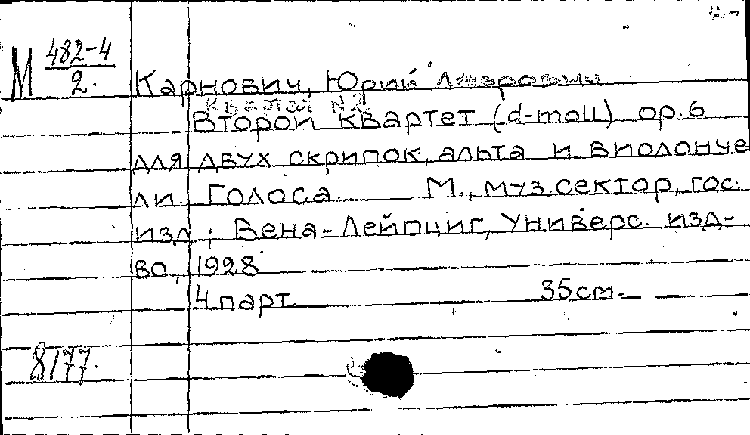 М 482-4
2.
Карнович, Юрий Лазаревич
Квартет №2
Второй квартет (d-moll) ор.6
для двух скрипок, альта и виолонче
ли Голоса М., муз.сектор, гос.
изд.; Вена-Лейпциг, Универс. изд-
во, 1928
4 парт. 35cm.
8177.